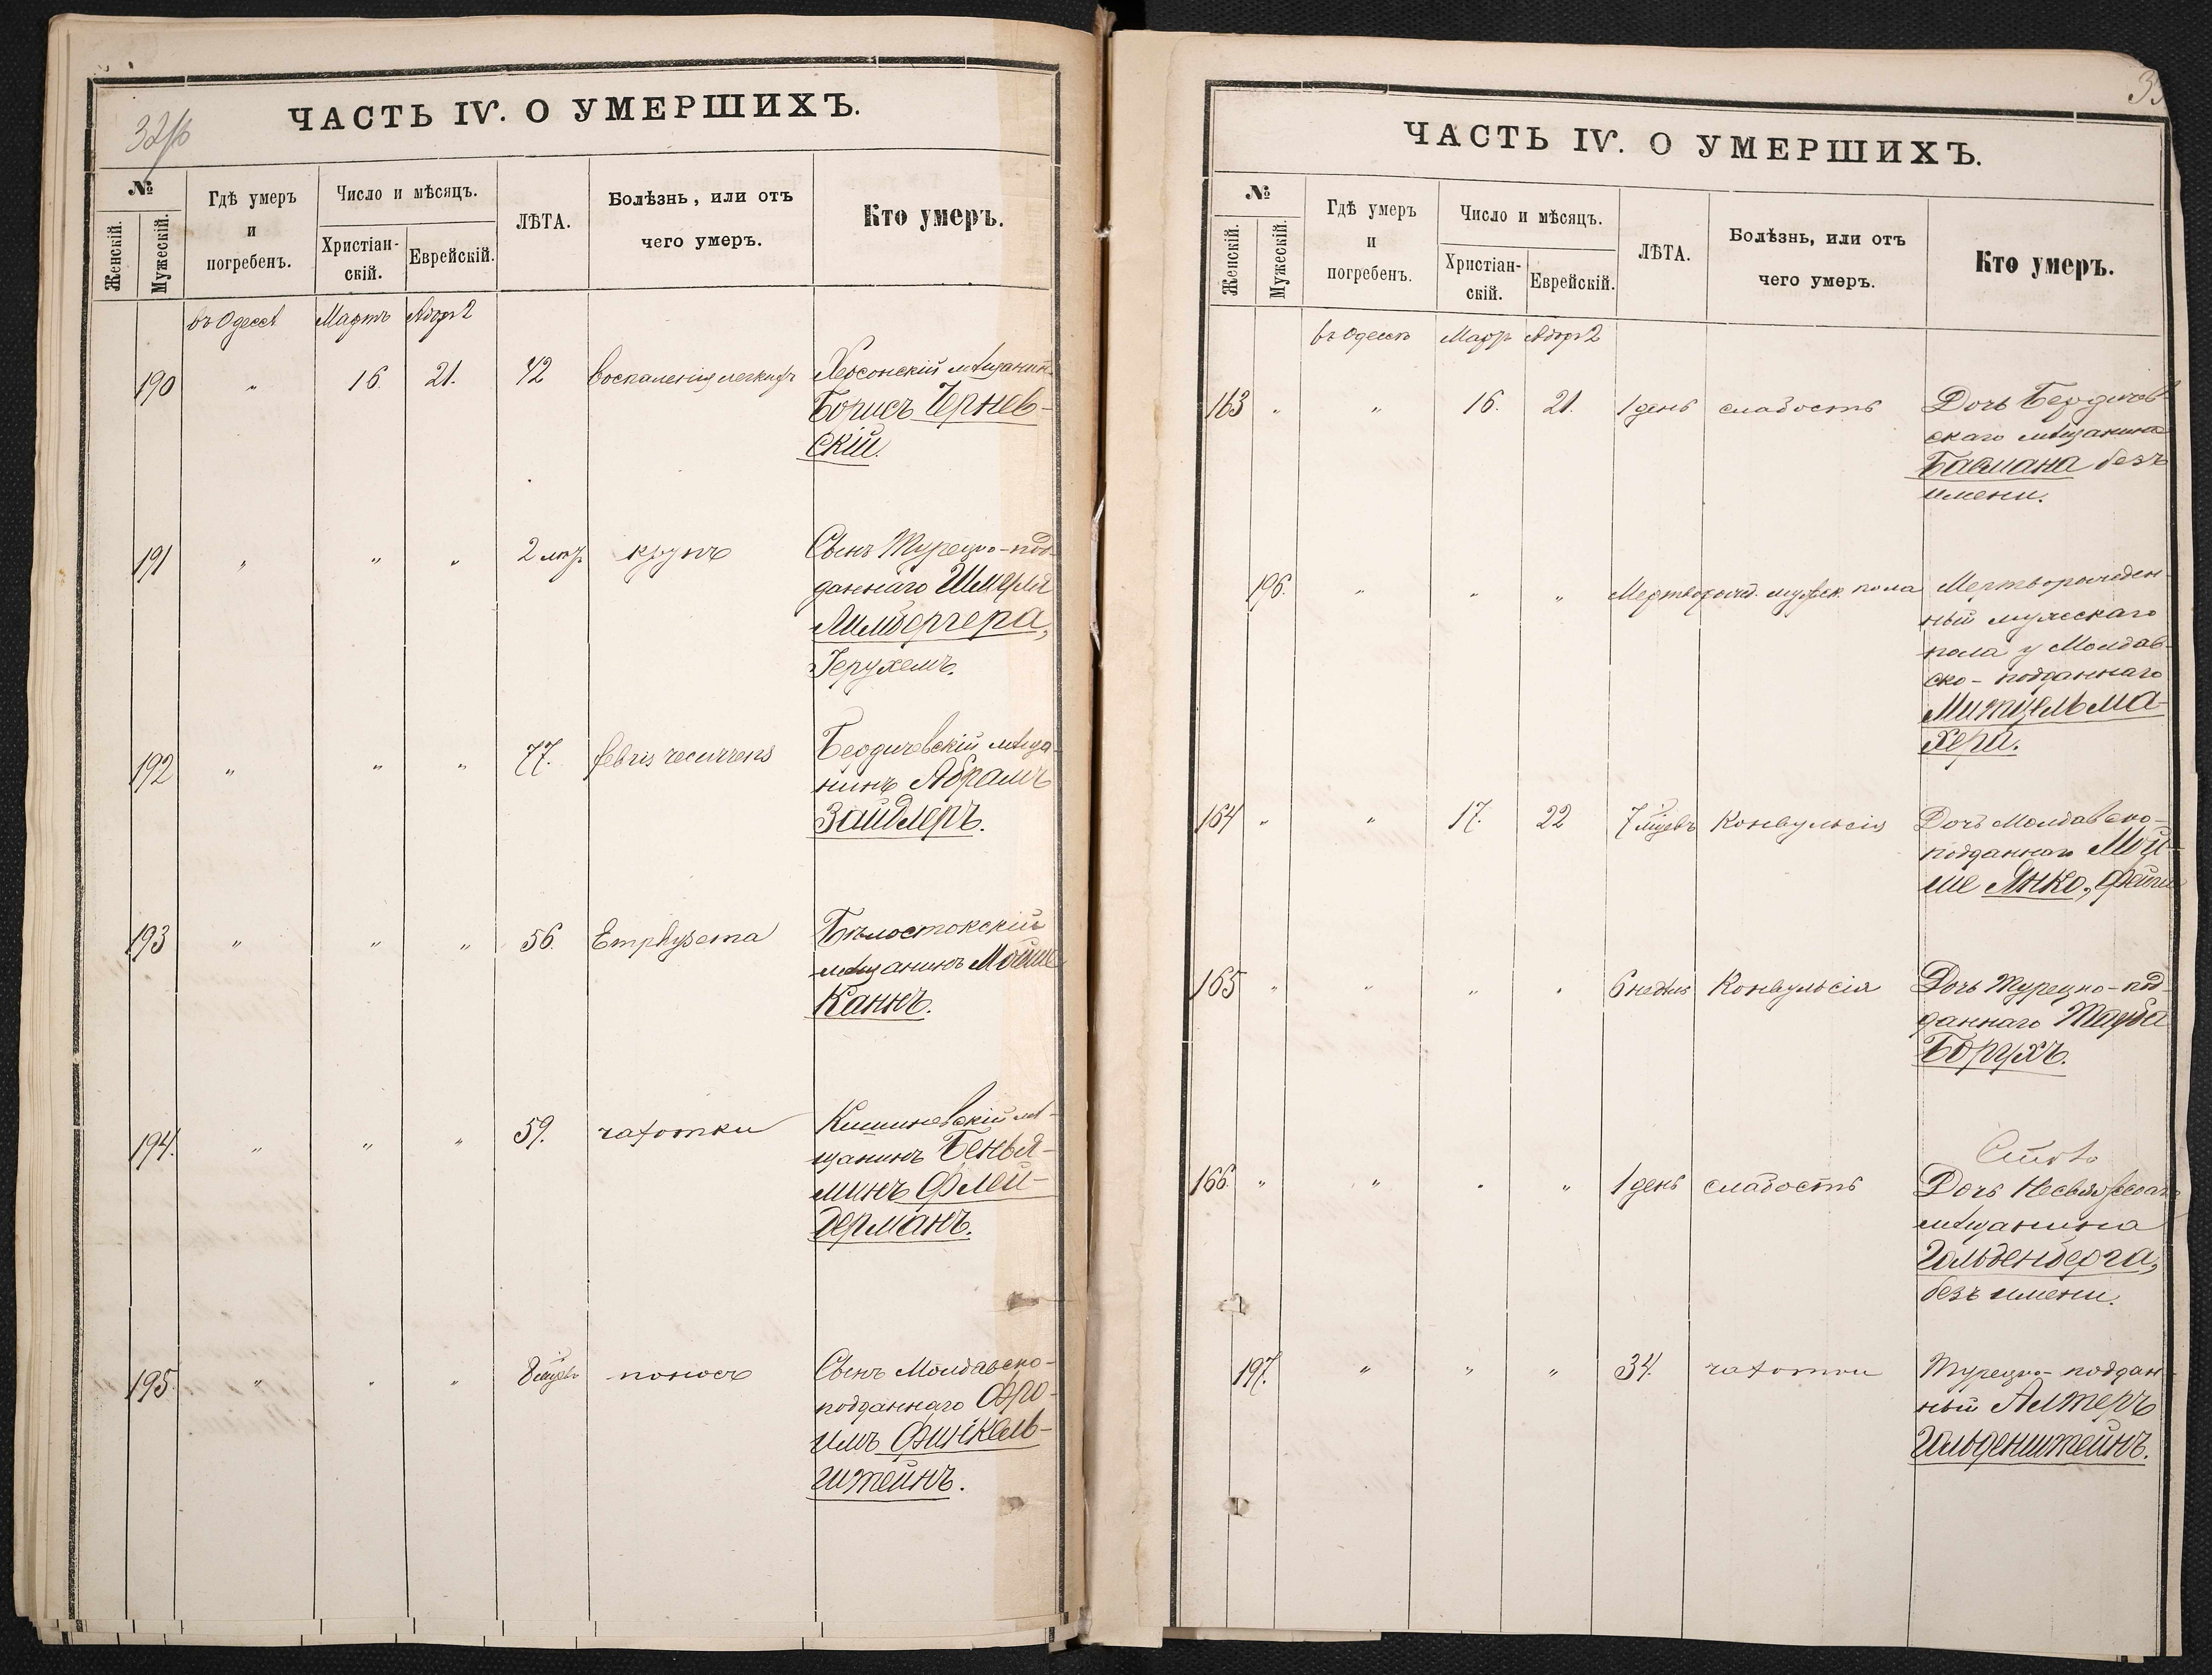 32 об
ЧАСТЬ IV. О УМЕРШИХЪ.
№
Женскій.
Мужескій.
Гдѣ умеръ
и
погребенъ.
Число и мѣсяцъ.
Христіан-
скій.
Еврейскій.
ЛѢТА.
Болѣзнь, или отъ
чего умеръ.
Кто умеръ.
въ Одессѣ Мартъ Адаръ 2
190 " 16. 21. 42 воспаленія легкихъ Херсонскій мѣщанинъ
Борисъ Чернев-
скій.
191 " " " 2 крупъ Сынъ Турецко-под-
даннаго Шмерля
Лимбергера,
Іерухемъ.
192 " " " 77. febris recurrens Бердичевскій мѣща-
нинъ Абрамъ
Зайдлеръ.
193 " " " 56. Emphysema Бѣлостокскій
мѣщанинъ Мойше
Каннъ.
194. " " " 59. чахотки Кишиневскій мѣ-
щанинъ Бенья-
минъ Флей-
дерманъ.
195. " " " 8 мѣсцевъ поносъ Сынъ Молдавско-
подданнаго Фро-
имъ Финкель-
штейнъ.
ЧАСТЬ IV. О УМЕРШИХЪ.
№
Женскій.
Мужескій.
Гдѣ умеръ
и
погребенъ.
Число и мѣсяцъ.
Христіан-
скій.
Еврейскій.
ЛѢТА.
Болѣзнь, или отъ
чего умеръ.
Кто умеръ.
въ Одессѣ Мартъ Адаръ 2
163 " " 16. 21. 1 день слабость Дочь Бердичев
скаго мѣщанина
Бавмана безъ
имени.
196. " " " Мерторожд. мужеск. пола Мерторожден-
ный мужескаго
пола у Молдав-
ско-подданнаго
Митцельма-
хера.
164 " " 17. 22 7 мѣсцевъ Конвульсія Дочь Молдавско-
подданнаго Мой-
ше Янко, Фейга
165 " " " " 6 недѣль Конвульсія Дочь Турецко-под-
даннаго Тауба
Борухъ.
166. " " " " 1 день слабость Дочь Несвижскаго
мѣщанина
Гольденберга,
безъ имени.
197. " " " 34. чахотки Турецко-поддан-
ный Алтеръ
Гольденштейнъ.